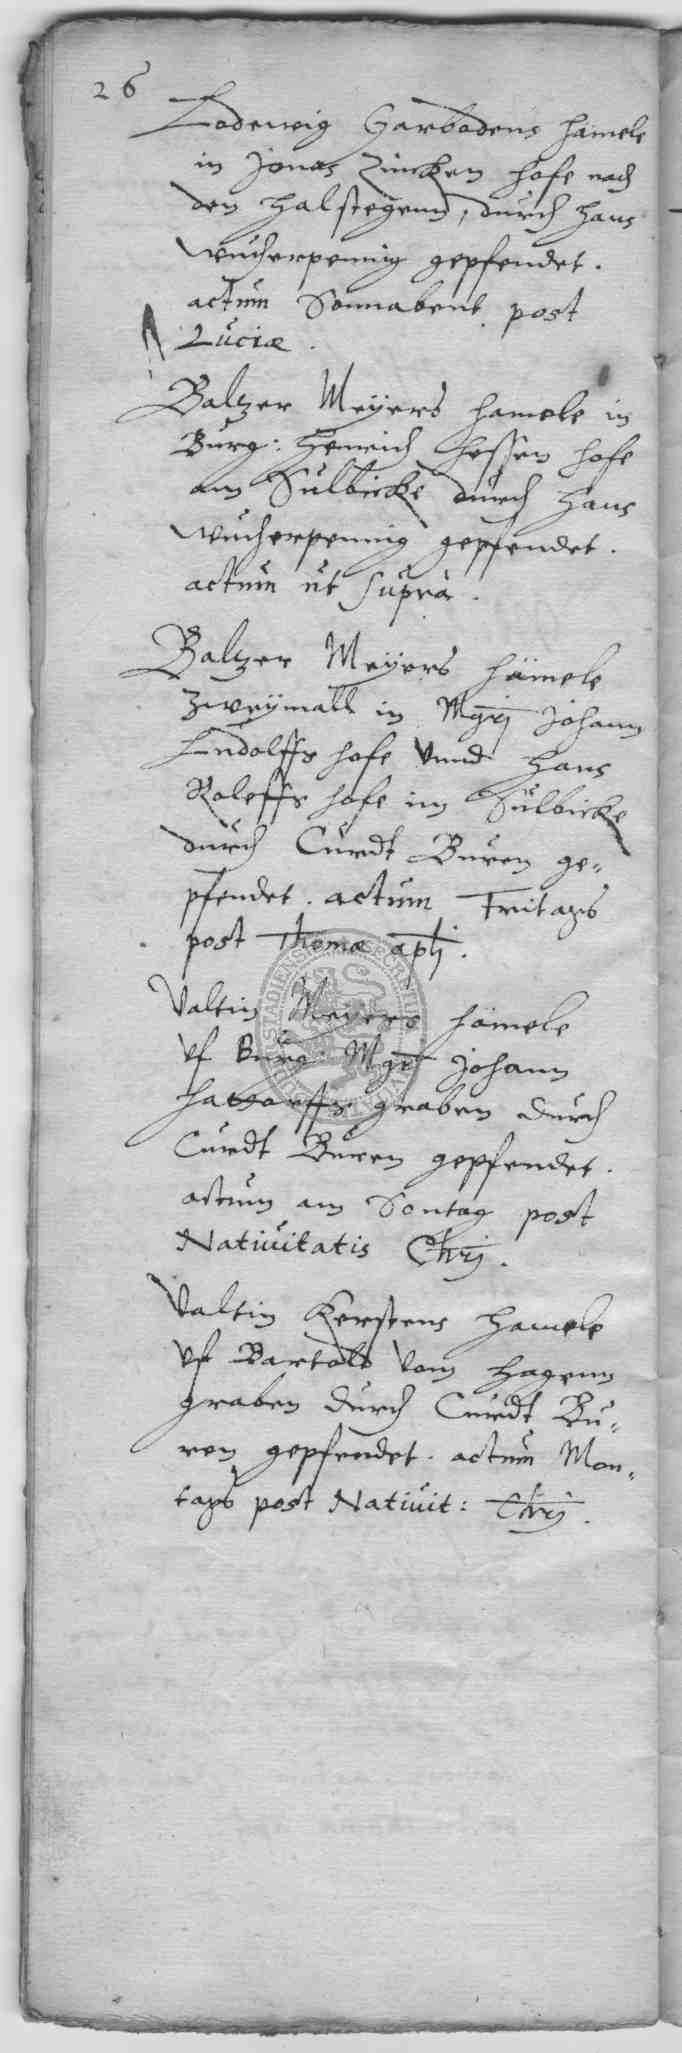 26
Lodewig Garbodens hämele
in Jonas Zincken hofe nach
den Halstegenn, durch Hans
Wucherpennig gepfendet.
actum Sonnabent post
Luciæ.
Baltzer Meÿers hamele in
Burg: Henrich Hessen hofe
am Sülbicke durch Hans
Wucherpennig gepfendet.
actum ut suprà.
Baltzer Meÿers hämele
zweÿmall in Mgrj Johann
Ludolffs hofe Vnnd Hans
Roleffs hofe im Sülbicke
durch Curdt Buren ge-
pfendet. actum Fritags
post Thomæ aplj.
Valtin Meÿers hämele
vf Burg: Mgri Johann
graben durch
Curdt Buren gepfendet.
actum am Sontag post
Natiuitatis Chrj.
Valtin Kerstens Hamele
vf Bartold Vom Hagenn
graben durch Curdt Bu-
ren gepfendet. actum Mon-
tags post Natiuit: Chrj.